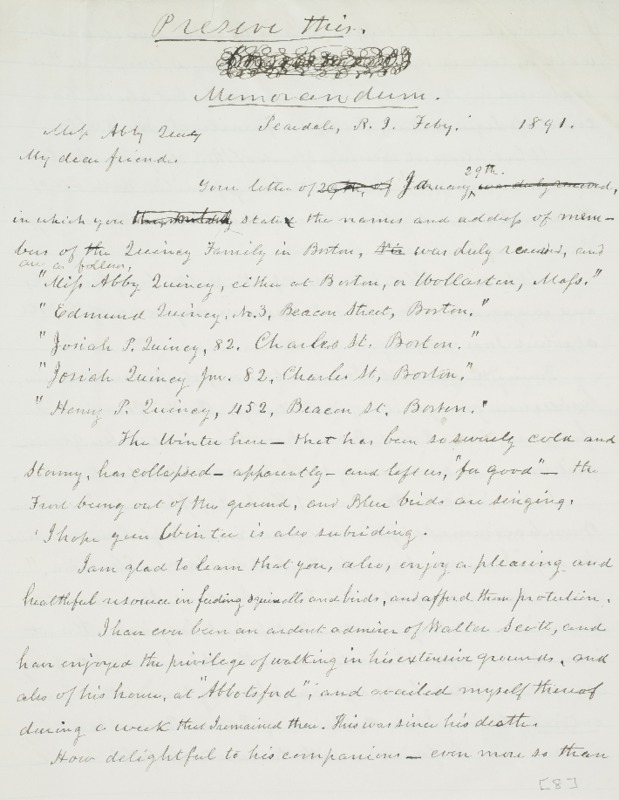 Preserve this.
Memorandum.
Peacedale, R. I. Feby. 1891.
Miss Abby Quincy
My dear friend.
Your letter of January 29th.
in which you state the names and address of mem-
bers of the Quincy Family in Boston, was duly received, and
are as follows,
"Miss Abby Quincy, either at Boston, or Wollaston, Mass."
"Edmund Quincy, No. 3, Beacon Street, Boston."
"Josiah P. Quincy, 82. Charles St. Boston."
"Josiah Quincy Jnr. 82, Charles St, Boston."
"Henry P. Quincy, 452, Beacon St. Boston."
The Winter here — that has been so severely cold and
Stormy, has collapsed — apparently — and left us, "for good" — the
Frost being out of the ground, and Blue birds are singing.
I hope your Winter is also subsiding.
I am glad to learn that you, also, enjoy a pleasing and
healthful resource in feeding squirrells and birds, and afford them protection.
I have ever been an ardent admirer of Walter Scott, and
have enjoyed the privilege of walking in his extensive grounds, and
also of his home, at "Abbotsford"; and availed myself thereof
during a week that I remained there. This was since his death.
How delightful to his companions — even more so than
[8]